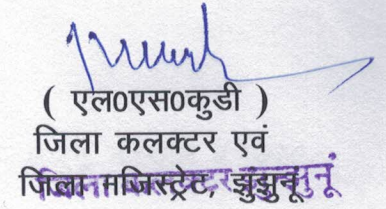 ( एल0एस0कुडी )
जिला कलक्टर एवं
जिला मजिस्ट्रेट, झुंझुनू